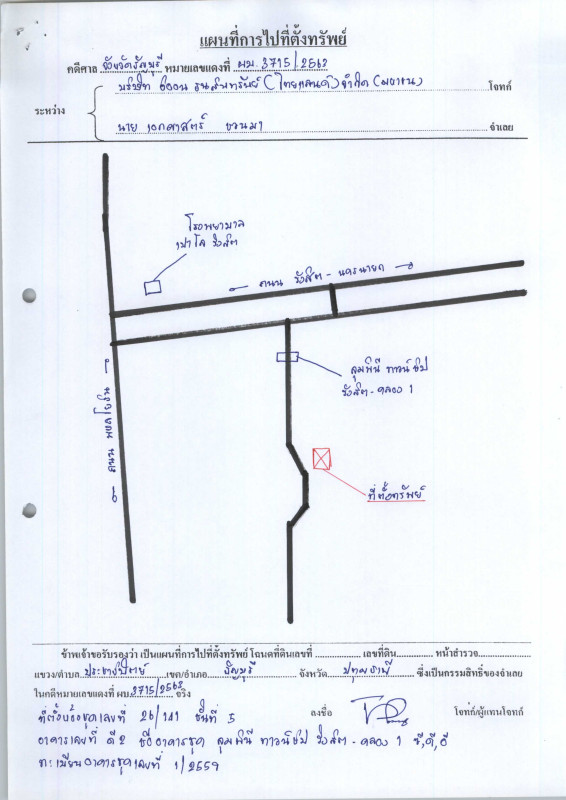 แผนที่การไปที่ตั้งทรัพย์
คดีศาล จังหวัดธัญบุรี หมายเลขแดงที่ ผบ. 3715/2562
ระหว่าง
บริษัท ออคาน ธนสินทรัพย์ (ไทยแลนด์) จำกัด (มหาชน) โจทก์
นาย เอกศาสตร์ ชวนมา จำเลย
โรงพยาบาล
เปาโล รังสิต
ถนน รังสิต - นครนายก
ถนน พหลโยธิน
ลุมพินี ทาวน์ชิป
รังสิต - คลอง 1
ที่ตั้งทรัพย์
ข้าพเจ้าขอรับรองว่า เป็นแผนที่การไปที่ตั้งทรัพย์ โฉนดที่ดินเลขที่ เลขที่ดิน หน้าสำรวจ
แขวง/ตำบล ประชาธิปัตย์ เขต/อำเภอ ธัญบุรี จังหวัด ปทุมธานี ซึ่งเป็นกรรมสิทธิ์ของจำเลย
ในคดีหมายเลขแดงที่ ผบ 3715/2562 จริง
ที่ตั้งห้องชุดเลขที่ 26/141 ชั้นที่ 5 ลงชื่อ โจทก์/ผู้แทนโจทก์
อาคารเลขที่ ดี2 ชื่ออาคารชุด ลุมพินี ทาวน์ชิป รังสิต - คลอง 1 ซี,ดี,อี
ทะเบียนอาคารชุดเลขที่ 1/2559